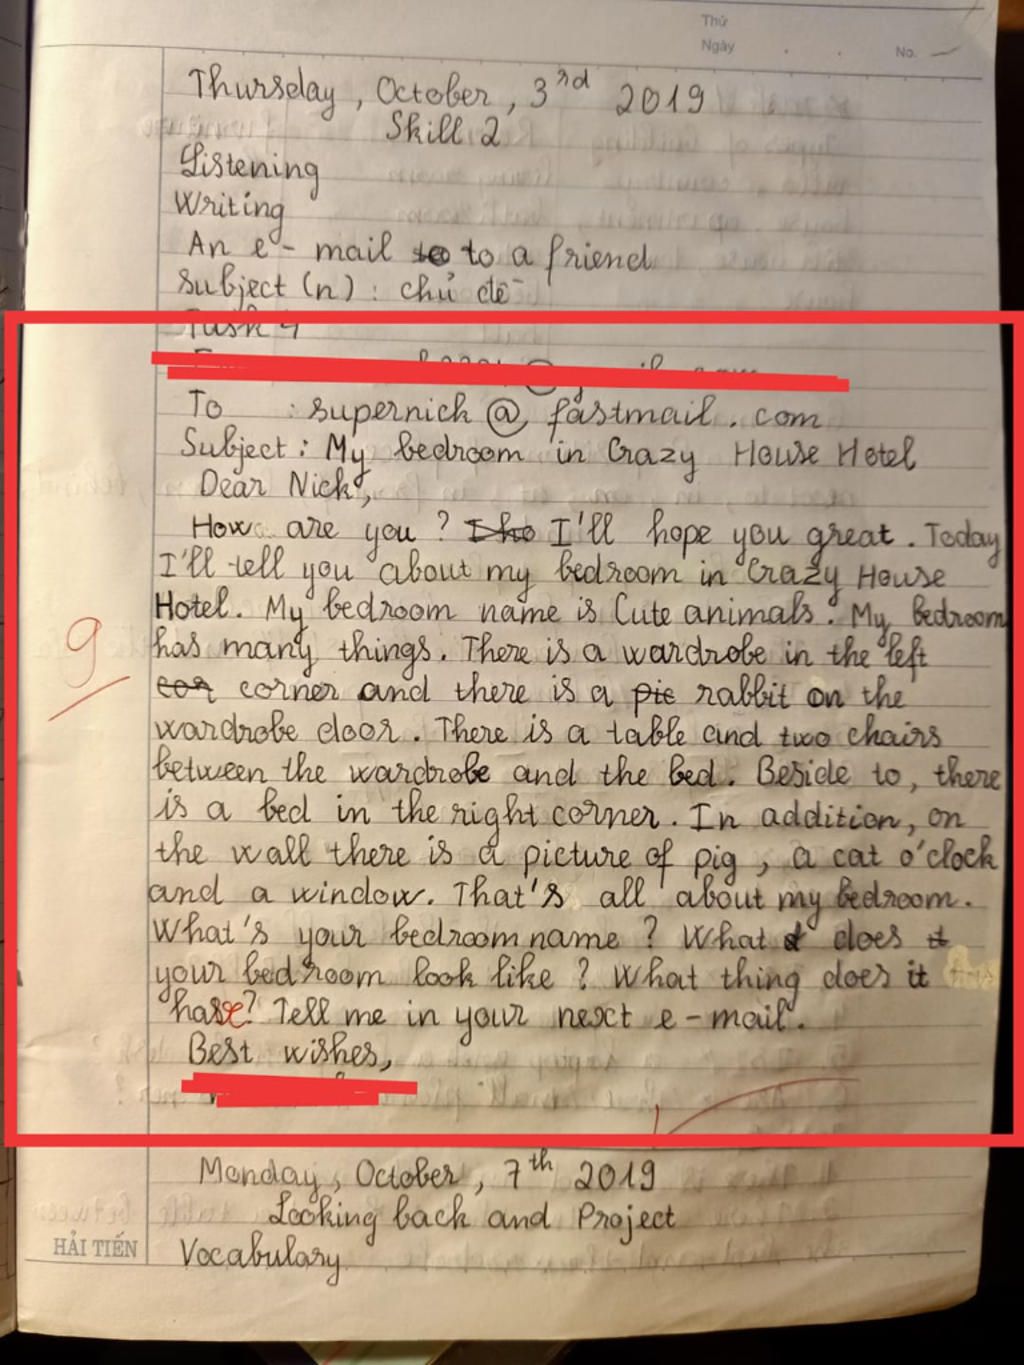 Thứ
Ngày
No.
Thursday, October, 3rd 2019
Skill 2
Listening
Writing
An e-mail to a friend
Subject (n) : chủ đề
Task 4
To : supernick @ fastmail . com
Subject : My bedroom in Crazy House Hotel
Dear Nick,
How are you ? I'll hope you great. Today
I'll tell you about my bedroom in Crazy House
Hotel. My bedroom name is Cute animals. My bedroom
has many things. There is a wardrobe in the left
cor corner and there is a pic rabbit on the
wardrobe door. There is a table and two chairs
between the wardrobe and the bed. Beside to, there
is a bed in the right corner. In addition, on
the wall there is a picture of pig, a cat o'clock
and a window. That's all about my bedroom.
What's your bedroom name ? What does
your bedroom look like ? What thing does it
have? Tell me in your next e-mail.
9
Best wishes,
Monday, October, 7th 2019
Looking back and Project
HẢI TIẾN
Vocabulary